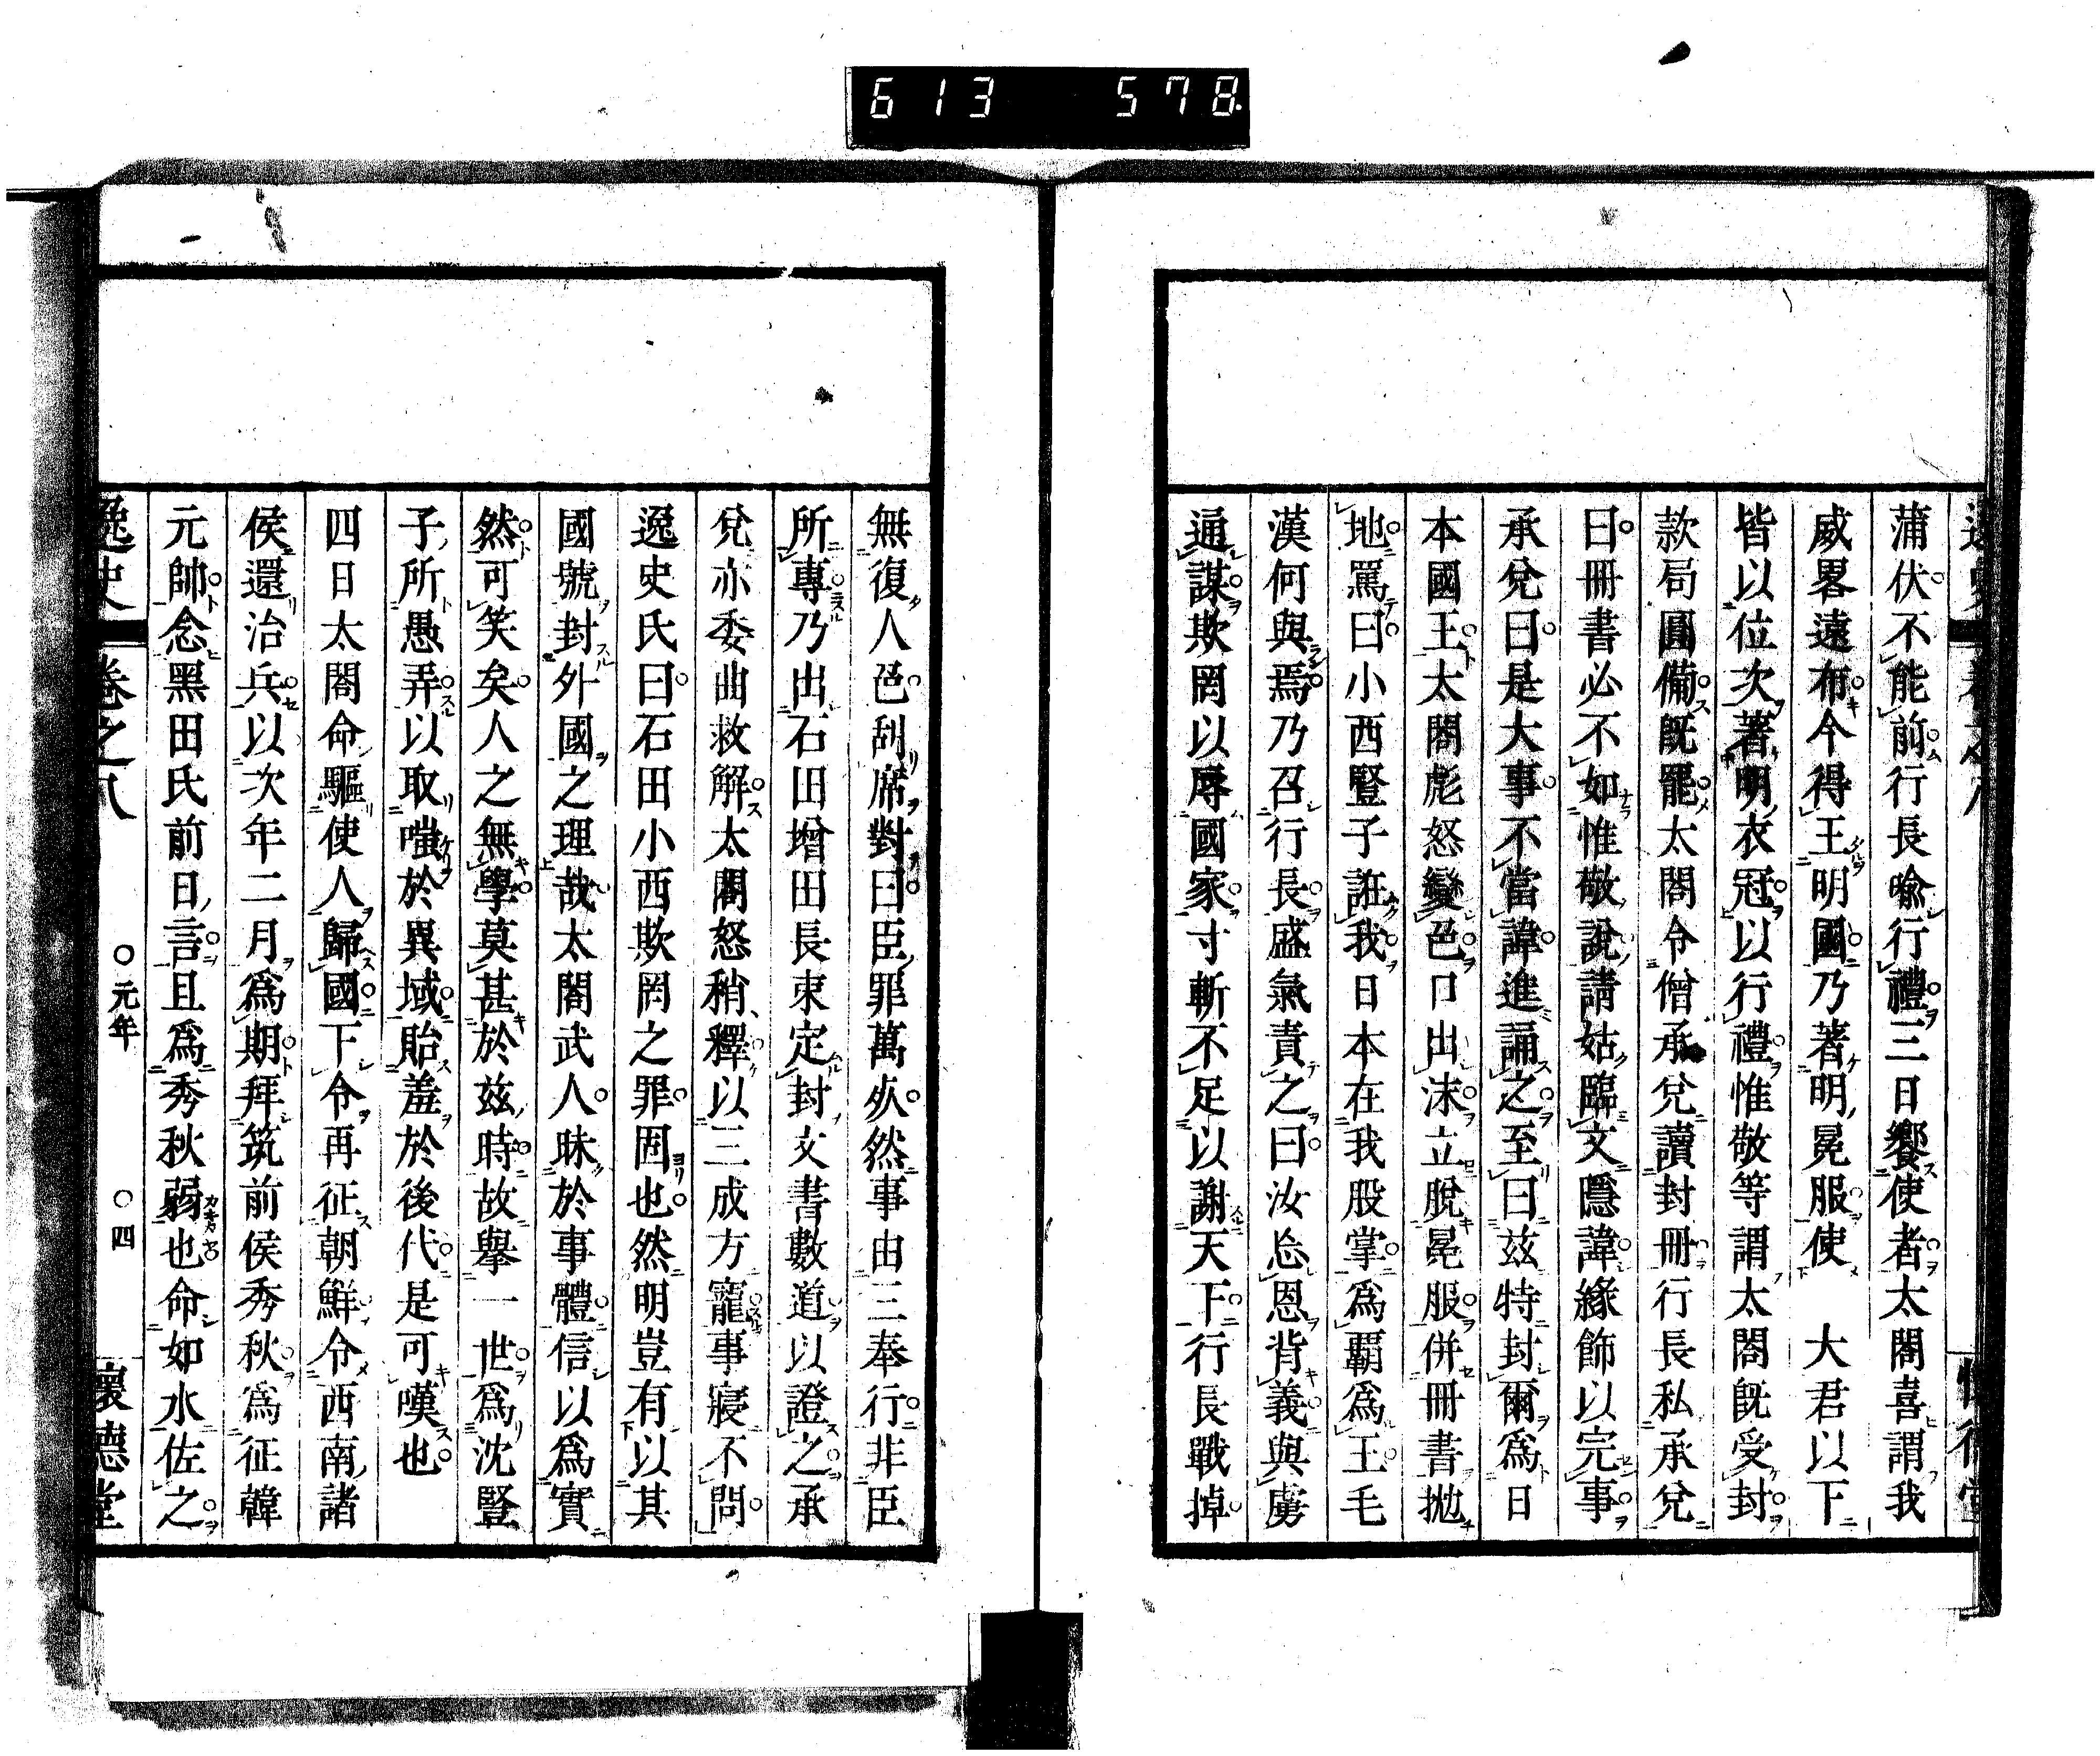 613 578
蒲伏不能前行長喩行禮三日饗使者太閤喜謂我
威畧遠布今得王明國乃著明冕服使　大君以下
皆以位次著明衣冠以行禮惟敬等謂太閤既受封
款局圓備既罷太閤令僧承兌讀封冊行長私承兌
曰冊書必不如惟敬說請姑臨文隱諱緣飾以完事
承兌曰是大事不當諱進誦之至曰玆特封爾爲日
本國王太閤彪怒變色口出沫立脫冕服併冊書拋
地罵曰小西豎子誑我日本在我股掌爲覇爲王毛
漢何與焉乃召行長盛氣責之曰汝忘恩背義與虜
通謀欺罔以辱國家寸斬不足以謝天下行長戰掉
無復人色刮席對曰臣罪萬死然事由三奉行非臣
所專乃出石田增田長束定封文書數道以證之承
兌亦委曲救解太閤怒稍釋以三成方寵事寢不問
逸史氏曰石田小西欺罔之罪固也然明豈有以其
國號封外國之理哉太閤武人昧於事體信以爲實
然可笑矣人之無學莫甚於玆時故擧一世爲沈豎
子所愚弄以取嗤於異域貽羞於後代是可嘆也
四日太閤命驅使人歸國下令再征朝鮮令西南諸
侯還治兵以次年二月爲期拜筑前侯秀秋爲征韓
元帥念黑田氏前日言且爲秀秋弱也命如水佐之
逸史 卷之八 〇元年 〇四 懷德堂